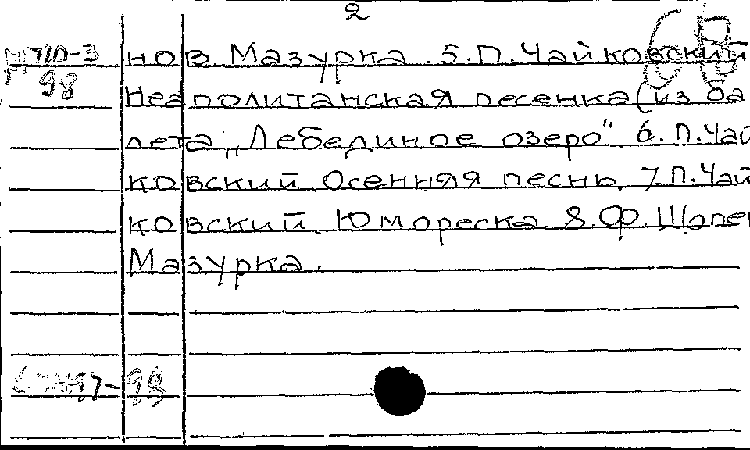 2
нов. Мазурка. 5. П. Чайковский
98
Неаполитанская песенка (из ба
лета „Лебединое озеро“. 6. П. Чай
ковский. Осенняя песнь. 7. П. Чай
ковский. Юмореска. 8. Ф. Шопен
Мазурка.